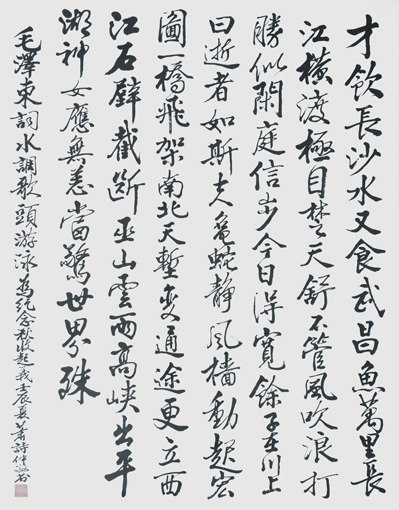 才飲長沙水又食武昌魚萬里長
江橫渡極目楚天舒不管風吹浪打
勝似閑庭信步今日得寬餘子在川上
曰逝者如斯夫龜蛇靜風檣動起宏
圖一橋飛架南北天塹變通途更立西
江石壁截斷巫山雲雨高峽出平
湖神女應無恙當驚世界殊
毛澤東詞水調歌頭游泳為紀念秋收起義壬辰夏蕭詩